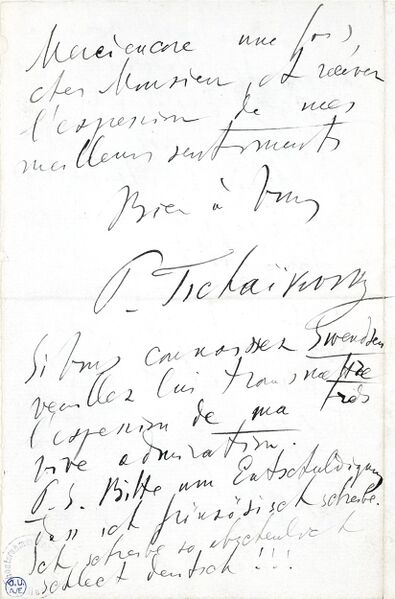 Merci encore une fois,
cher Monsieur, et recever
l'expression de mes
meilleurs sentiments
Bien à Vous
P. Tschaïkovsky
Si Vous connaissez Swendsen
veuillez lui transmettre
l'expression de ma très
vive admiration.
P.S. Bitte um Entschuldigung
dass ich französisch schreibe.
Ich schreibe so abscheulich
schlecht deutsch!!!